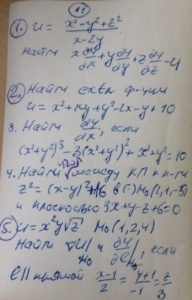 1. u = (x³-y²+z²)/(x-2y)
Найти x ∂u/∂x + y ∂u/∂y + z ∂u/∂z - u
2. Найти экстр ф-ции
u = x²+xy+y²-2x-y+10
3. Найти dy/dx, если
(x²+y²)³-3(x²+y²)²+x²+y²=10
4. Найти угол между КП к п-ти
z² = (x-y)²+6 в () M₀(1,1,-5)
и плоскостью 3x+y-z+6=0
5. u = x²y√z M₀(1,2,4)
Найти ∇u|M₀ и ∂u/∂ℓ|M₀, если
ℓ || прямой (x-1)/2 = (y+1)/-1 = z/3